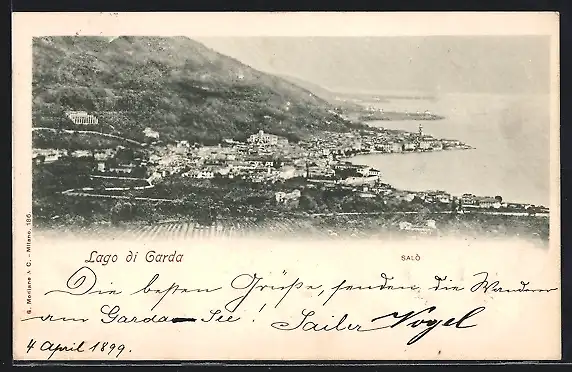 Lago di Garda
SALÒ
Die besten Grüße, senden, die Wanderer
am Garda-See! Sailer Vogel
4 April 1899.
G. Modiano & C. - Milano. 186